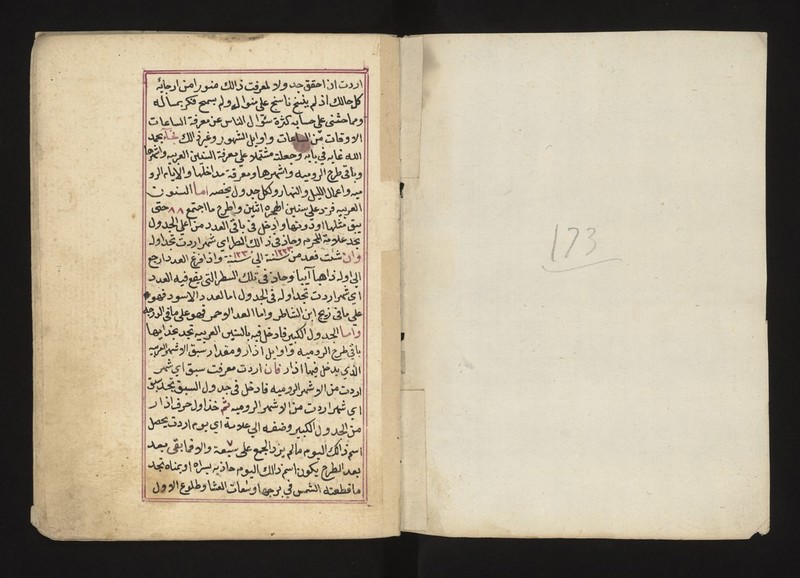 اردت ان احقق جدولا لمعرفت ذالك منورا من ارجائه
كل حالك اذ لم ينسخ ناسخ على منواله ولم يسمح فكر بمساله
ومما حثنى على حسابه كثرة سؤال الناس عن معرفة الساعات
الاوقات من الساعات واوايل الشهور وغير ذالك فجا بحمد
الله غايه فى بابه وجعلته مشتملا على معرفة السنين العربيه واشهرها
وباقى طرح الروميه واشهرها ومعرفة مداخلها والايام الرو
ميه واعمال الليل والنهار ولكل جدول يخصه اما السنون
العربيه فزد على سنين الهجره اثنين واطرح مما اجتمع ٨٨ حتى
يبق مثلها او دونها وادخل فى باقى العدد من اعلى الجدول
تجد علامة المحرم وحاذ فى ذالك اى شهر اردت تجد اوله
وان شئت فعد من سنة ١٢٢٣ الى سنة ١٢٣٠ واذا فرغ العدد ارجع
الى اوله ذاهبا آيبا وحاذ فى تلك السطر التى يقع فيه العدد
اى شهر اردت تجد اوله فى الجدول اما العدد الاسود فهو
على ما فى زيج ابن الشاطر واما العدد الاحمر فهو على ما فى
واما الجدول الكبير فادخل فيه بالسنين العربيه تجد عندها
باقى طرح الروميه واوايل اذار ومقدار سبق الاشهر العربيه
الذى يدخل فيها اذار فان اردت معرفت سبق اى شهر
اردت من الاشهر الروميه فادخل فى جدول السبق تجد سبق
اى شهر اردت من الاشهر الروميه ثم خذ اول حرف اذار
من الجدول الكبير وضفه الى علامة اى يوم اردت يحصل
اسم ذالك اليوم مالم يزد الجمع على سبعة ٧ والا فابقى بعد
بعد الطرح يكون اسم ذالك اليوم حاذيه بيسراه او بيمناه تجد
ما قطعته الشمس فى برجها وساعات العشا وطلوع الاول
173